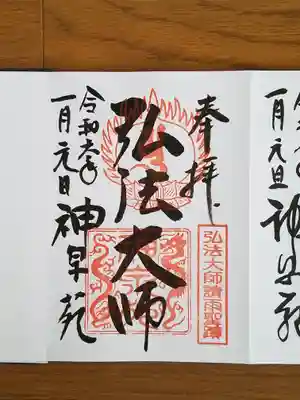 奉拝
弘法大師請雨聖蹟
弘法大師
令和六年
一月元日
神早苑
一月元旦